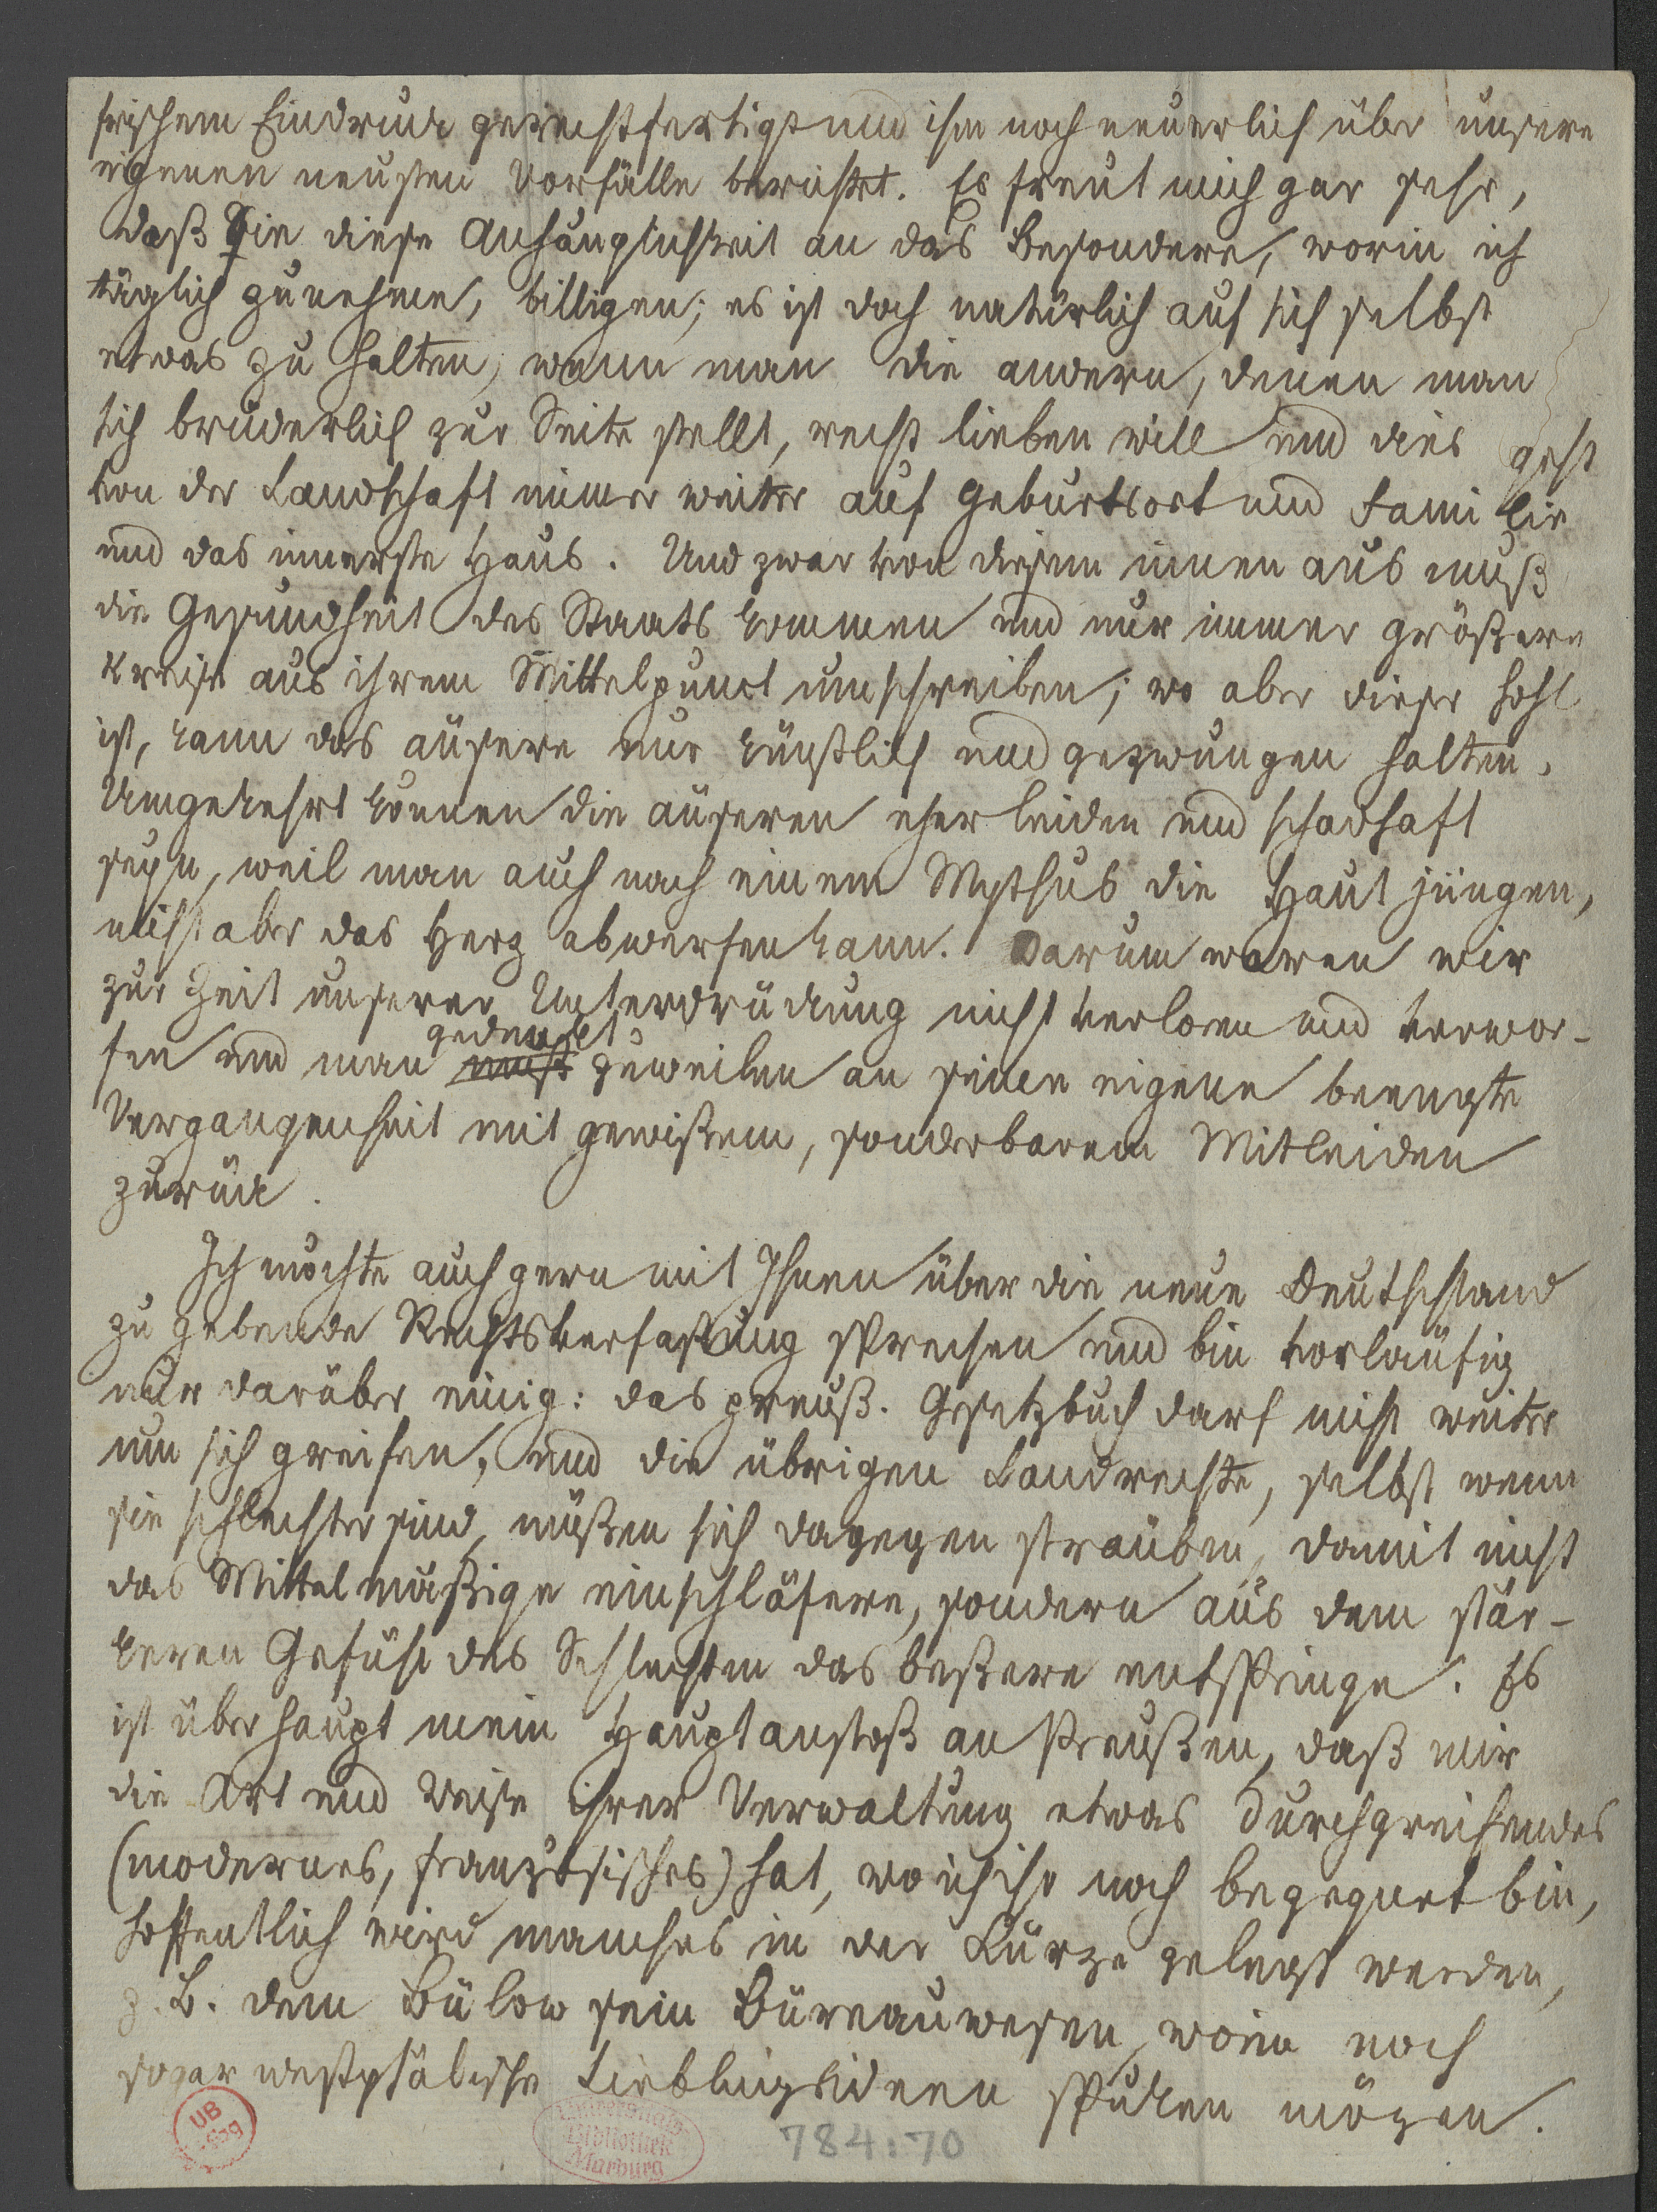 frischem Eindruck gerechtfertigt und ihm noch neuerlich über unsere
eigenen neusten Vorfälle berichtet. Es freut mich gar sehr,
daß Sie diese Anhänglichkeit an das Besondere, worin ich
täglich zunehme, billigen; es ist doch natürlich auf sich selbst
etwas zu halten, wenn man die andern, denen man
sich brüderlich zur Seite stellt, recht lieben will und dies geht
von der Landschaft immer weiter auf Geburtsort und Familie
und das innerste Haus. Und zwar von diesem innen aus muß
die Gesundheit des Staats kommen und nur immer größere
Kreise aus ihrem Mittelpunct umschreiben; wo aber dieser hohl
ist, kann das äusere nur künstlich und gezwungen halten.
Umgekehrt können die äuseren eher leiden und schadhaft
seyn, weil man auch nach einem Mythus die Haut jüngen,
nicht aber das Herz abwerfen kann. Darum waren wir
zur Zeit unserer Unterdrückung nicht verloren und verwor-
gedenkt
fen und man zuweilen an seine eigene beengte
Vergangenheit mit gewißem, sonderbarem Mitleiden
zurück.
Ich möchte auch gern mit Ihnen über die neue Deutschland
zu gebende Rechtsverfaßung sprechen und bin vorläufig
nur darüber einig: das preuß. Gesetzbuch darf nicht weiter
um sich greifen, und die übrigen Landrechte, selbst wenn
sie schlechter sind, müßen sich dagegen sträuben, damit nicht
das Mittelmäßige einschläfere, sondern aus dem stär-
keren Gefühl des Schlechten das beßere entspringe. Es
ist überhaupt mein Hauptanstoß an Preußen, daß mir
die Art und Weise ihrer Verwaltung etwas durchgreifendes
(modernes, französisches) hat, wo ich ihr noch begegnet bin,
hoffentlich wird manches in der Kürze gelegt werden,
z. B. dem Bülow sein Büreauwesen, worin noch
sogar westphälische Lieblingsideen spuken mögen.
UB
Universitäts
Bibliothek
Marburg
784:70